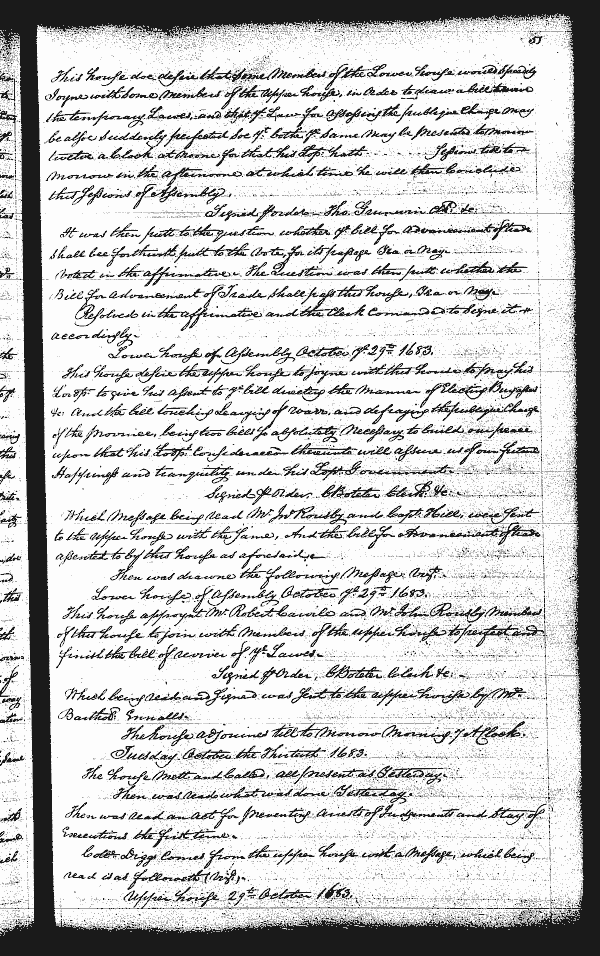 51
This house doe desire that some Members of the Lower house would speedily
Joyne with some Members of the Upper house, in Order to draw a bill to revive
the temporary Lawes, and that ye Law for Assessing the publique Charge may
be also Suddenly perfected Soe yt both ye Same may be presented to morrow
twelve a Clock at Noone for that his Lopp. hath Sessions till to
morrow in the afternoone at which time he will then Conclude
this Sessions of Assembly.
Signed p Order - Tho. Grunwin Clk. &c.
It was then putt to the question whether ye bill for Advancement of trade
shall bee forthwith putt to the Vote, for its passage Yea or Nay.
Voted in the affirmative. The Question was then putt whether the
Bill for Advancement of Trade shall pass this house, Yea or Nay.
Resolved in the affirmative and the Clerk Comanded to Signe it
accordingly.
Lower house of Assembly October ye 29th 1683.
This house desire the upper house to joyne with this house to pray his
Lordpp. to give his assent to ye bill directing the Manner of Electing Burgesses
&c. And the bill touching Leavying of warr, and defraying the publique Charge
of the Province, being two bills so absolutely Necessary to build our peace
upon that his Lopps. Condescention thereunto will assure us of our future
Happiness and tranquility under his Lopps. Government.
Signed p Order. C Boteler Clerk. &c.
Which Message being read Mr. Jno Rousby and Capt. Hill, were Sent
to the upper house with the Same, And the bill for Advancement of trade
assented to by this house as aforesaid.
Then was drawne the following Message Vizt.
Lower house of Assembly October ye 29th 1683.
This house appoynt Mr. Robert Carvile and Mr. John Rousby Members
of this house to join with Members of the upper house to perfect and
finish the bill of reviver of ye Lawes.
Signed p Order, C Boteler Clerk &c.
Which being read and Signed was Sent to the upper house by Mr.
Bartho. Ennalls.
The house adjourned till to Morrow Morning 7 A Clock.
Tuesday October the Thirtieth 1683.
The house Mett and Called, all present as Yesterday.
Then was read what was done Yesterday.
Then was read an Act for Preventing Arrests of Judgements and Stay of
Executions the first time.
Coll. Diggs Comes from the upper house with a Message, which being
read is as followeth (Vizt).
Upper house 29th October 1683.